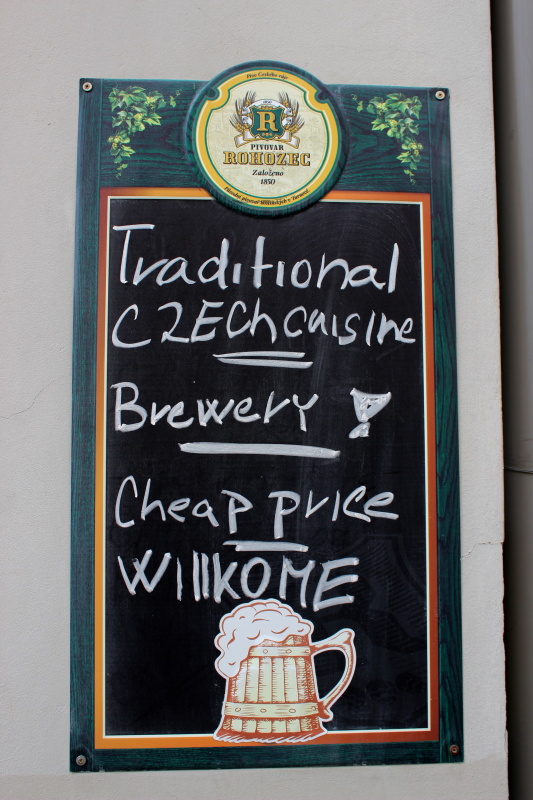 Pivo Českého ráje
R
PIVOVAR
ROHOZEC
Založeno
1850
Traditional
CZECh cuisine
Brewery
Cheap price
WIllKOME